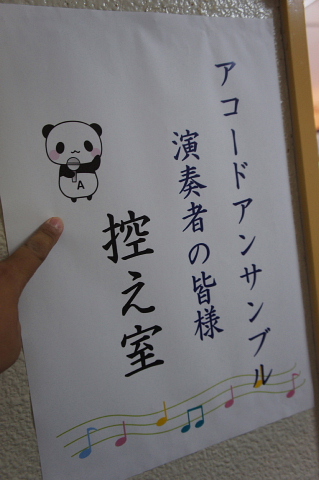 アコードアンサンブル
演奏者の皆様
控え室
A